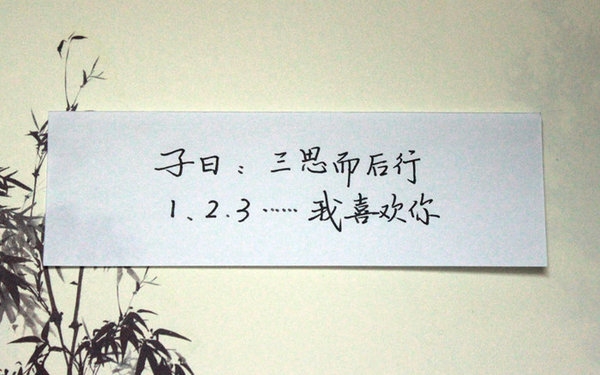 子曰：三思而后行
1、2、3……我喜欢你